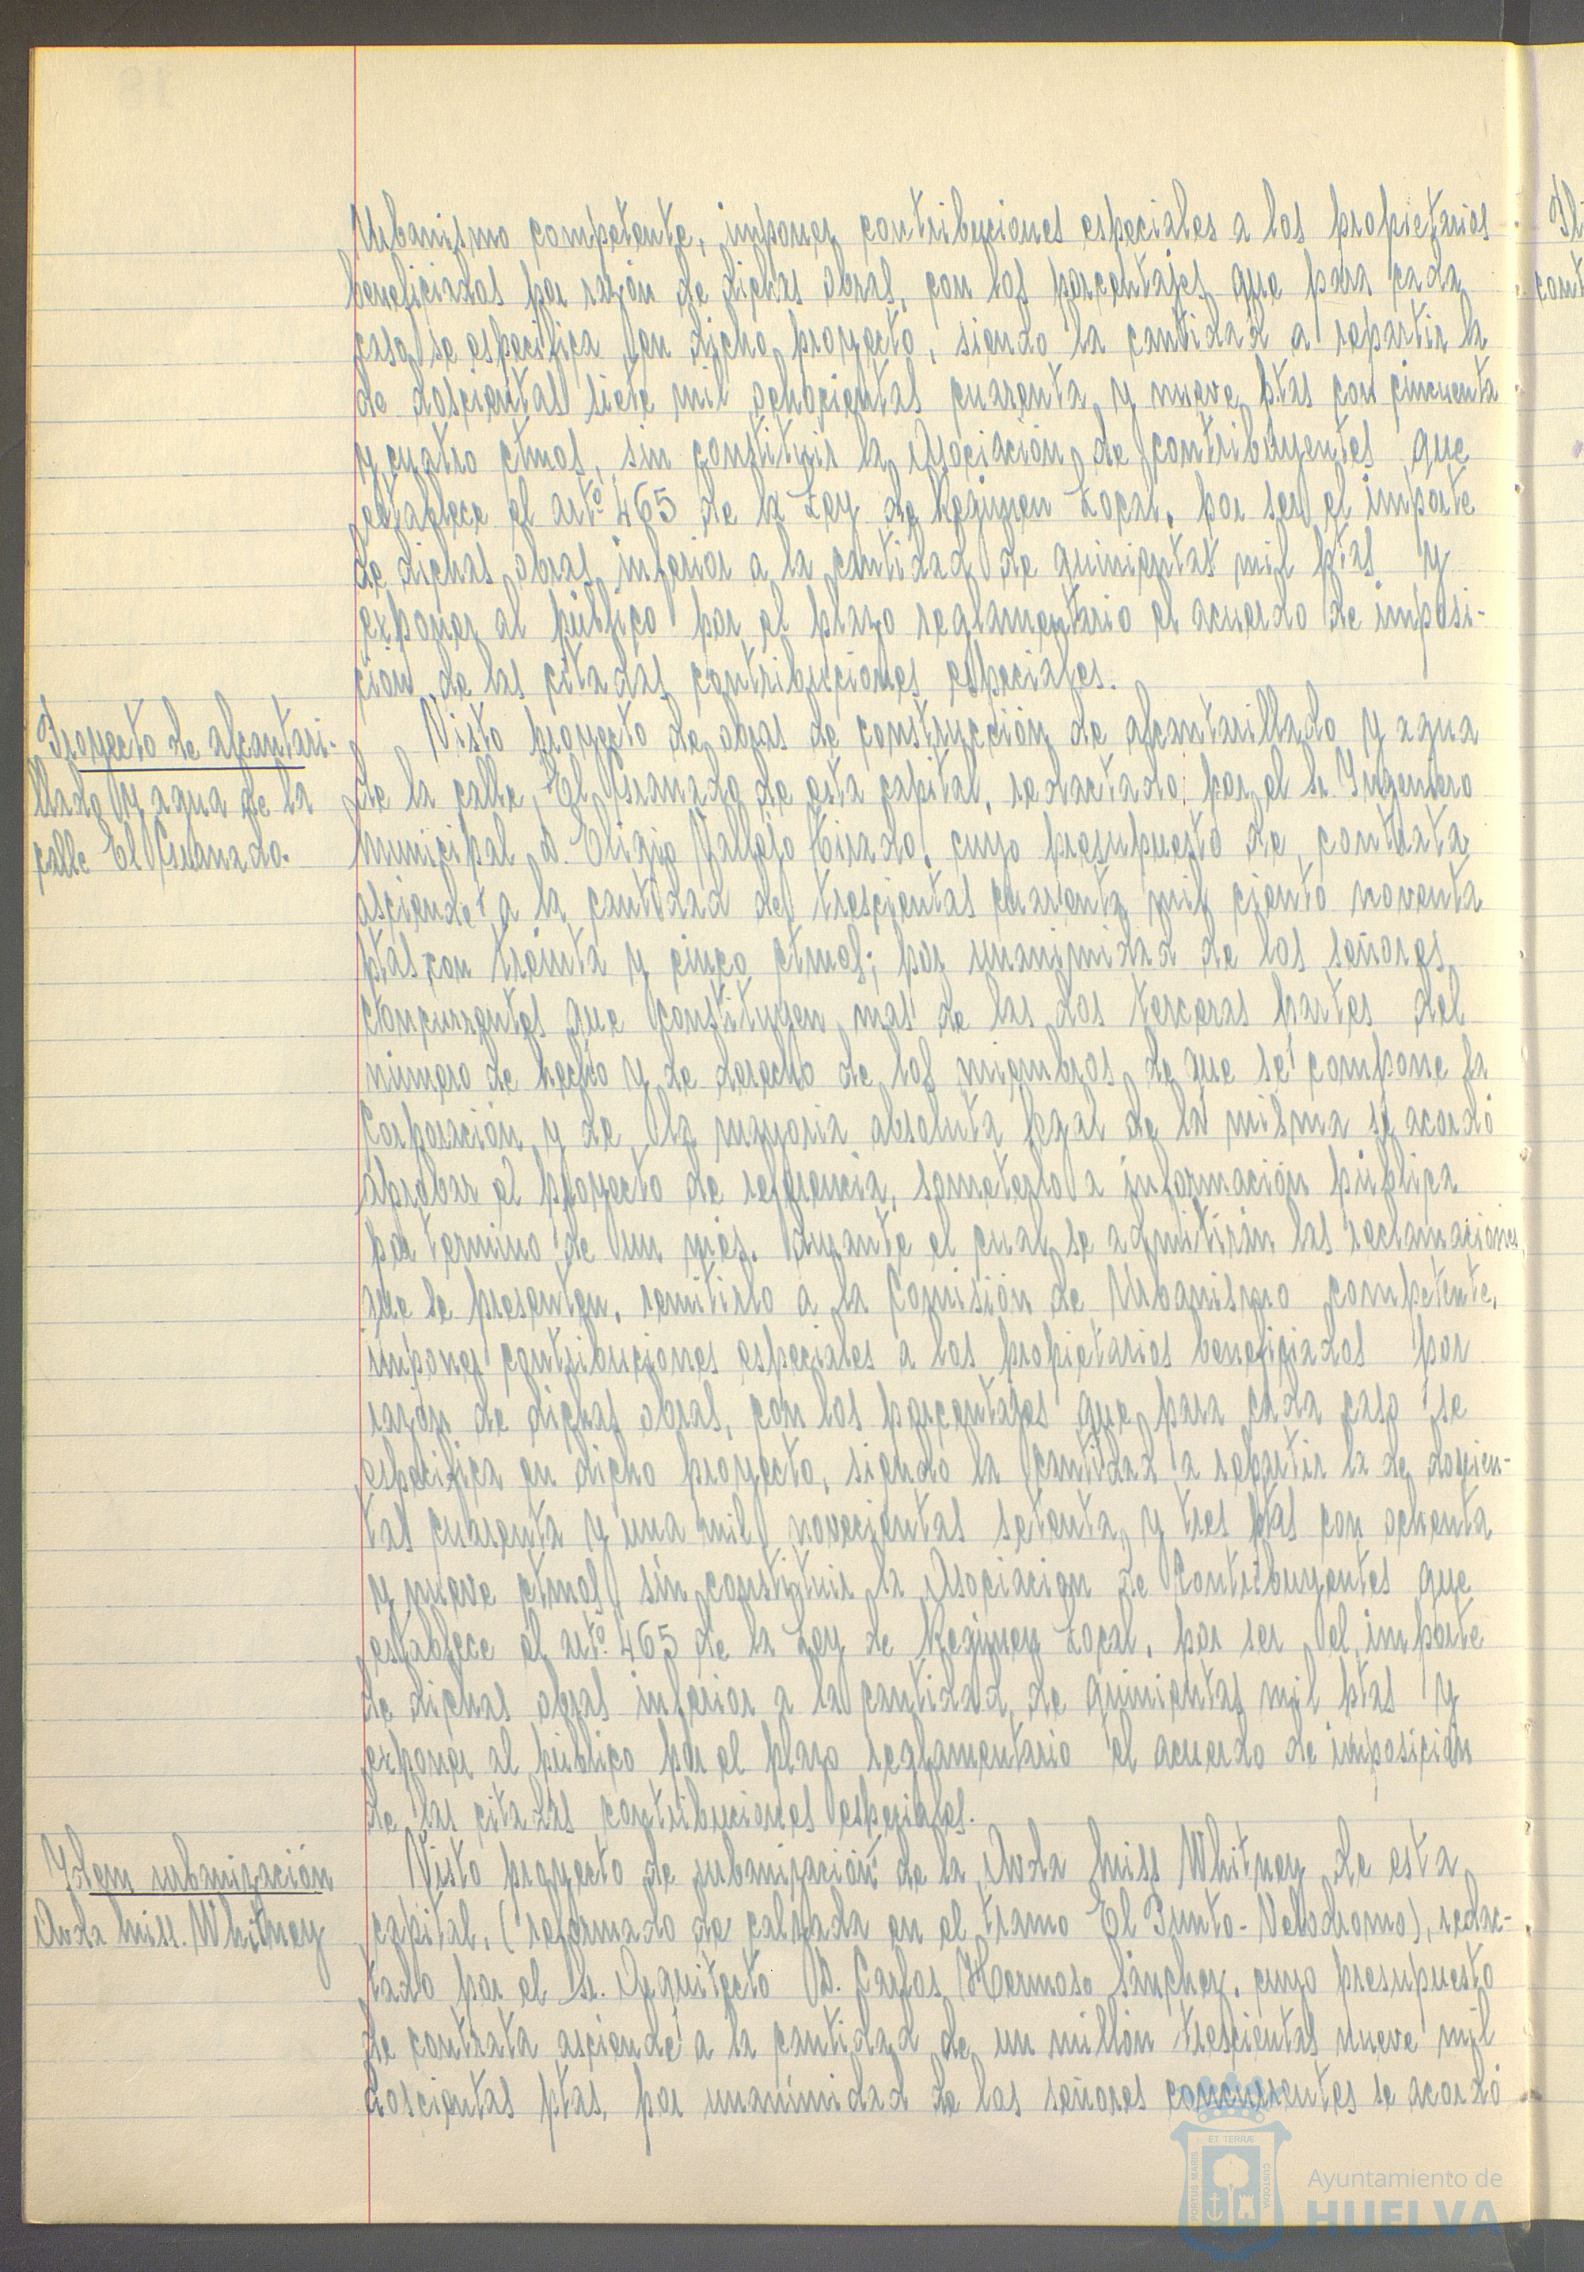 Urbanismo competente, imponer contribuciones especiales a los propietarios
beneficiados por razón de dichas obras, con los porcentajes que para cada
caso se especifica en dicho proyecto, siendo la cantidad a repartir la
de doscientas siete mil ochocientas cuarenta y nueve ptas con cincuenta
y cuatro ctmos, sin constituir la Asociación de contribuyentes que
establece el artº 465 de la Ley de Regimen Local, por ser el importe
de dichas obras inferior a la cantidad de quinientas mil ptas y
exponer al público por el plazo reglamentario el acuerdo de imposi-
ción de las citadas contribuciones especiales.
Proyecto de alcantari-
llado y agua de la
calle El Granado.
Visto proyecto de obras de construcción de alcantarillado y agua
de la calle El Granado de esta capital, redactado por el Sr. Ingeniero
Municipal D. Eligio Vallejo Tirado, cuyo presupuesto de contrata
asciende a la cantidad de trescientas cuarenta mil ciento noventa
ptas con treinta y cinco ctmos; por unanimidad de los señores
concurrentes que constituyen mas de las dos terceras partes del
número de hecho y de derecho de los miembros de que se compone la
Corporación y de la mayoria absoluta legal de la misma se acordó
aprobar el proyecto de referencia, someterlo a información pública
por termino de un mes, durante el cual se admitirán las reclamaciones
que se presenten, remitirlo a la Comisión de Urbanismo competente,
imponer contribuciones especiales a los propietarios beneficiados por
razón de dichas obras, con los porcentajes que para cada caso se
especifica en dicho proyecto, siendo la cantidad a repartir la de doscien-
tas cuarenta y una mil novecientas setenta y tres ptas con ochenta
y nueve ctmos, sin constituir la Asociacion de Contribuyentes que
establece el artº 465 de la Ley de Regimen Local, por ser el importe
de dichas obras inferior a la cantidad de quinientas mil ptas y
exponer al público por el plazo reglamentario el acuerdo de imposición
de las citadas contribuciones especiales.
Idem urbanización
Avda Miss. Whitney
Visto proyecto de urbanización de la Avda Miss Whitney de esta
capital, (reformado de calzada en el tramo El Punto-Velodromo), redac-
tado por el Sr. Arquitecto D. Carlos Hermoso Sánchez, cuyo presupuesto
de contrata asciende a la cantidad de un millón trescientas nueve mil
doscientas ptas, por unanimidad de los señores concurrentes se acordó
PORTUS MARIS
ET TERRÆ
CUSTODIA
Ayuntamiento de
HUELVA